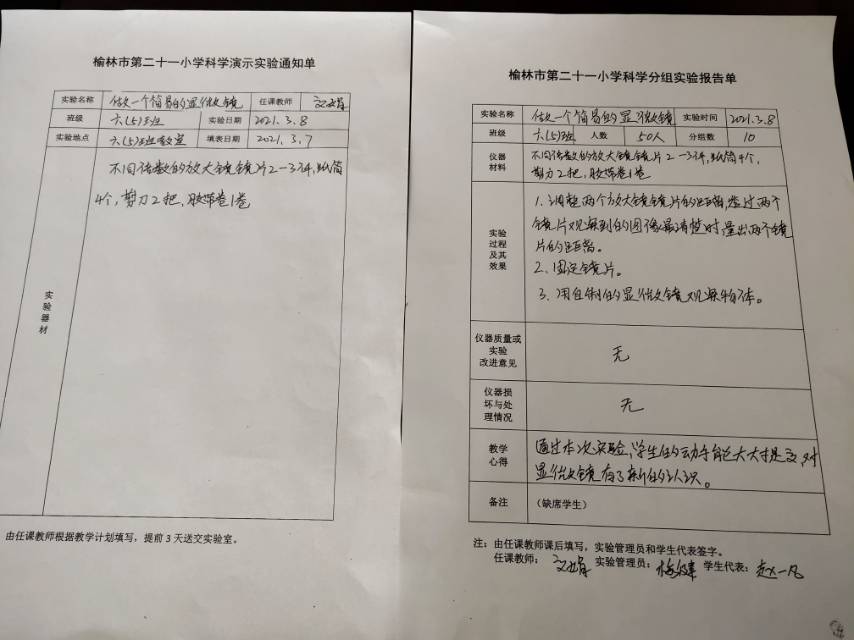 榆林市第二十一小学科学演示实验通知单
实验名称 做一个简易的显微镜 任课教师
班级 六(5)班 实验日期 2021.3.8
实验地点 六(5)班教室 填表日期 2021.3.7
实验器材
不同倍数的放大镜镜片2-3个,纸筒
4个,剪刀2把,胶带卷1卷
由任课教师根据教学计划填写,提前3天送交实验室。
榆林市第二十一小学科学分组实验报告单
实验名称 做一个简易的显微镜 实验时间 2021.3.8
班级 六(5)班 人数 50人 分组数 10
仪器
材料
不同倍数的放大镜镜片2-3个,纸筒4个,
剪刀2把,胶带卷1卷
实验
过程
及其
效果
1.调整两个放大镜镜片的距离,透过两个
镜片观察到的图像最清楚时,量出两个镜
片的距离。
2、固定镜片。
3、用自制的显微镜观察物体。
仪器质量或
实验
改进意见
无
仪器损
坏与处
理情况
无
教学
心得
通过本次实验,学生的动手能力大大提高,对
显微镜有了新的认识。
备注 (缺席学生)
注:由任课教师课后填写,实验管理员和学生代表签字。
任课教师: 实验管理员: 学生代表:赵一凡